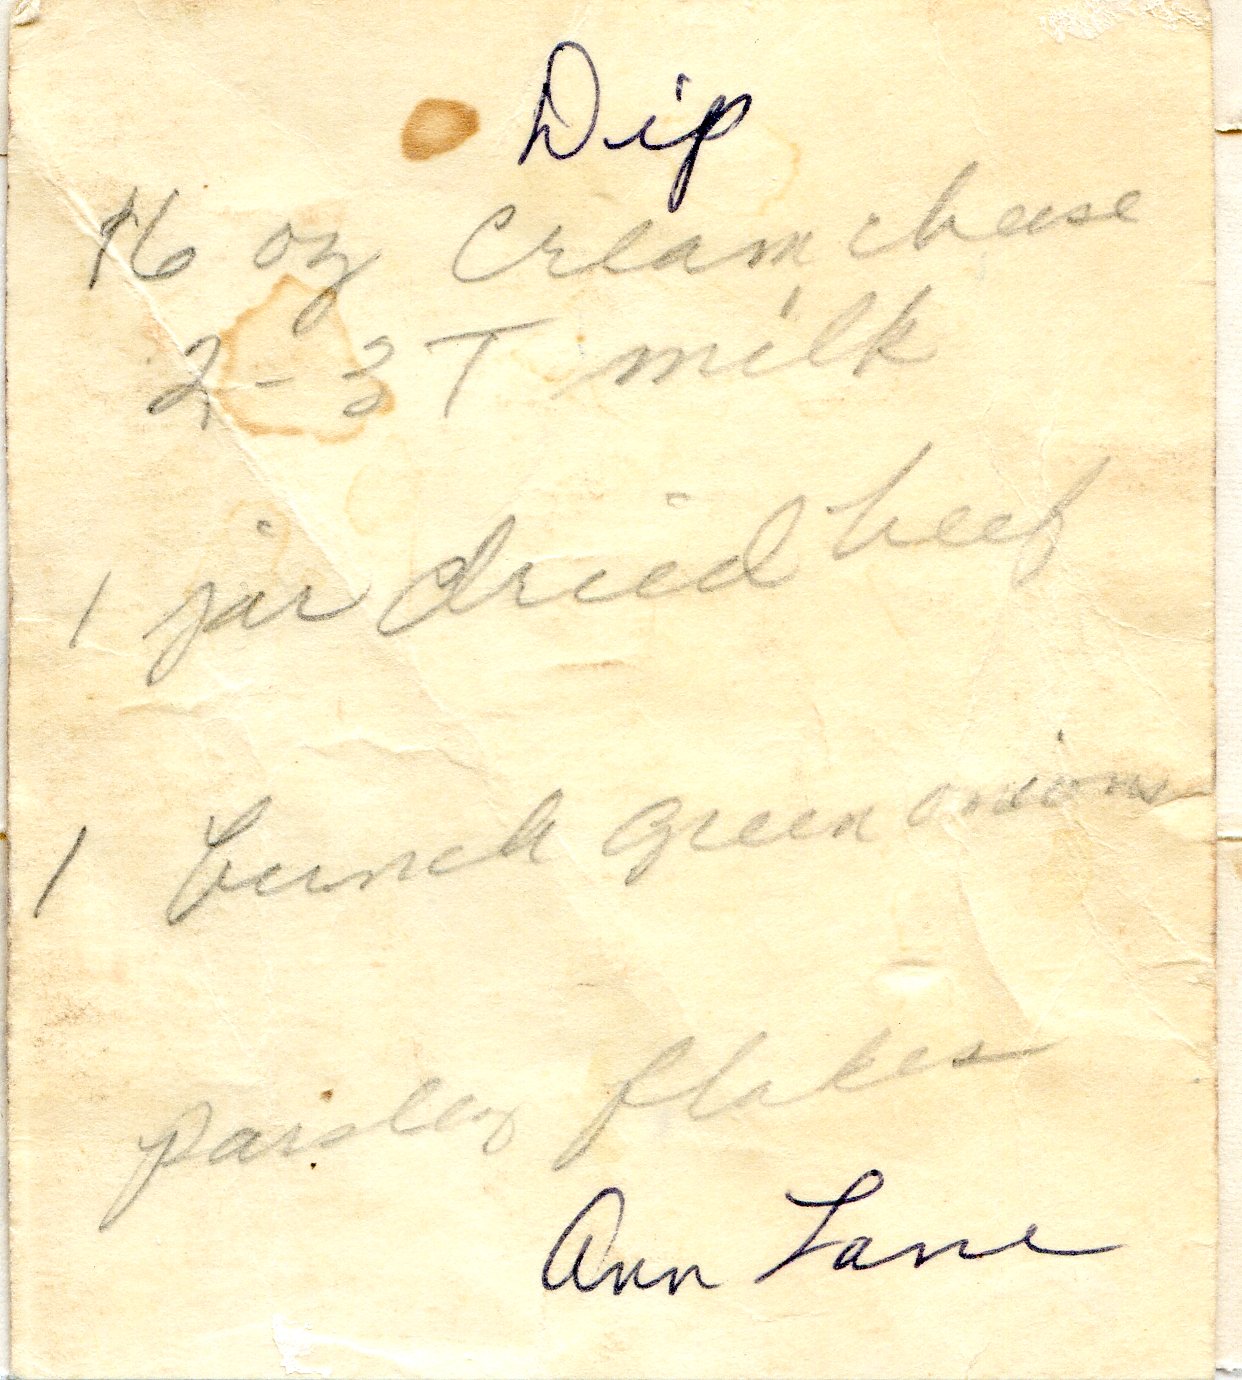 Dip
16 oz Cream cheese
2-3 T milk
1 jar dried beef
1 bunch green onions
parsley flakes
Ann Lane